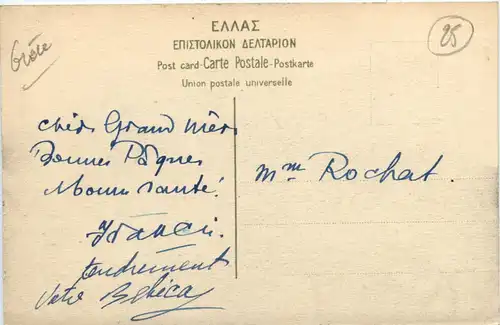 Grèce
25
ΕΛΛΑΣ
ΕΠΙΣΤΟΛΙΚΟΝ ΔΕΛΤΑΡΙΟΝ
Post card-Carte Postale-Postkarte
Union postale universelle
chère Grand Mère
Bonnes Pâques
Bonne santé!
tendrement
Votre
Mme Rochat.